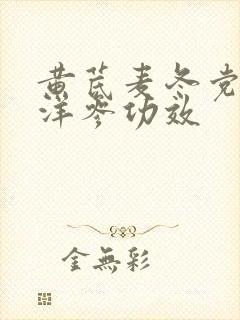 黄芪麦冬党
洋参功效
金無彩